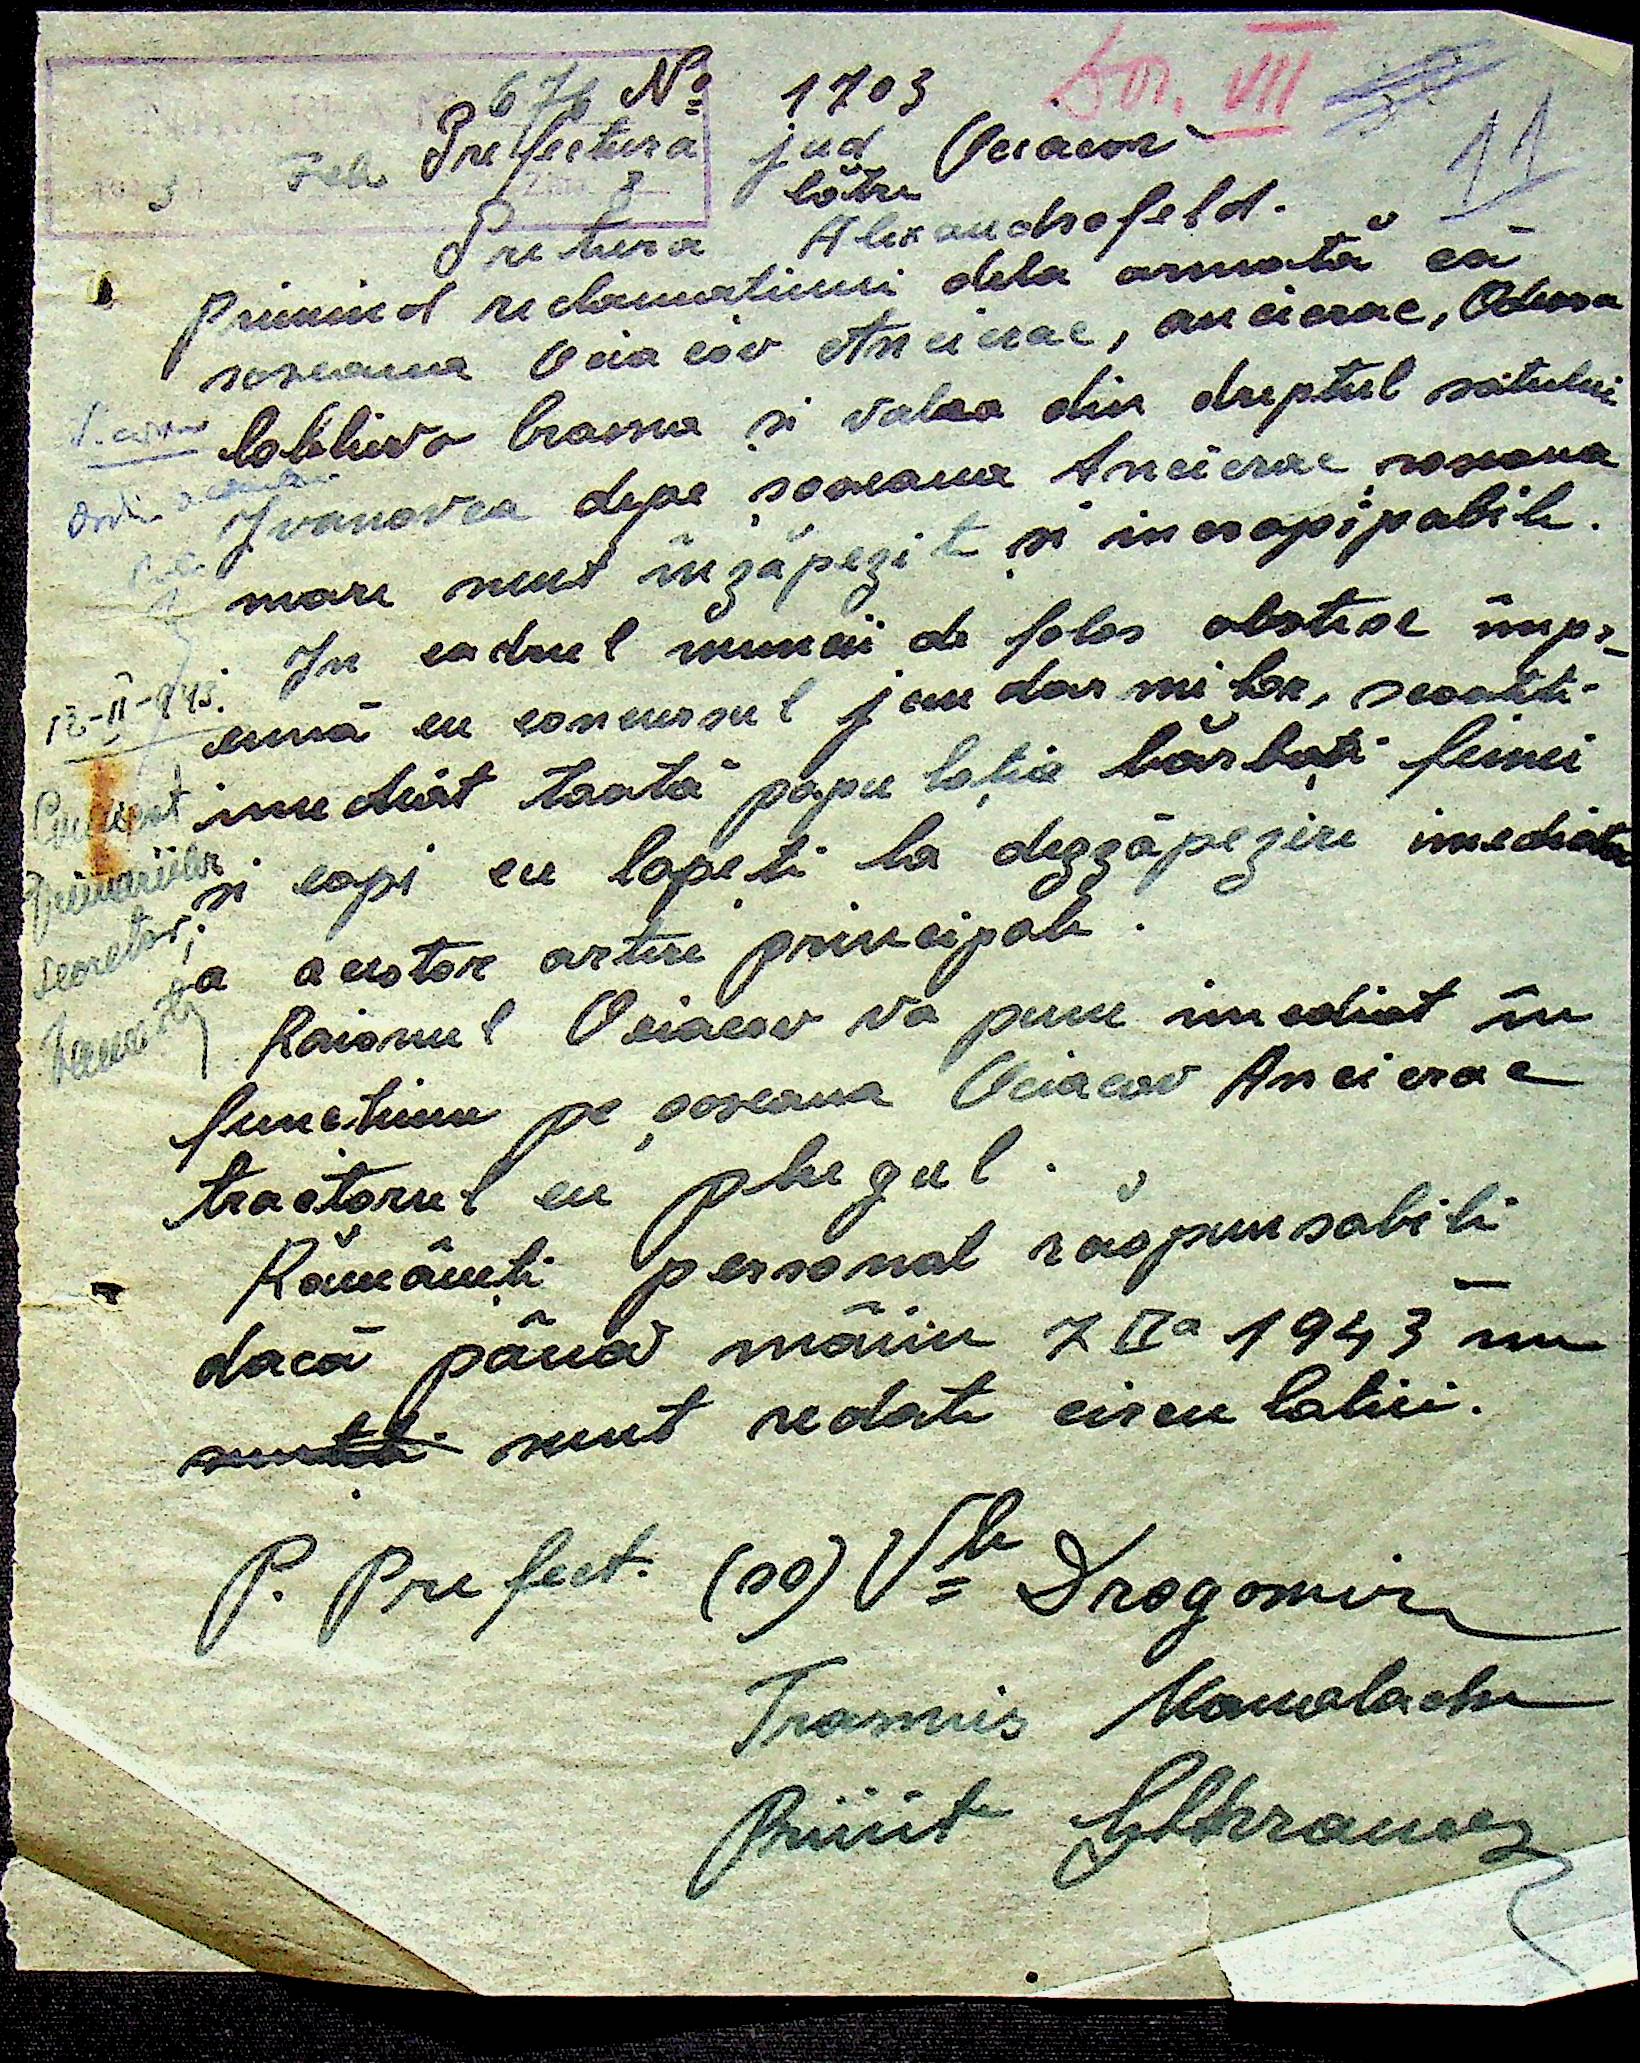 676 No 1703
Dos. VII
11
Prefectura jud Ociacov
către
Feb
Pretura Alexandrofeld.
Primind reclamatiuni dela armată că
soseaua Ociacov Ancicrac, ancicrac, Odessa
Cobliuvo Crasna si valea din dreptul satului
Ivanovca depe șoseaua Ancicrac soseaua
mare sunt înzăpezite și incropipabile.
In cadrul muncii de folos obstesc împr-
eună cu concursul jandarmilor, scoateti
imediat toată populația bărbați femei
si copi cu lopeti la dezzăpezire imediata
a acestor artere principale.
Raionul Ociacov va pune imediat în
functiune pe șoseaua Ociacov Ancicrac
tractorul cu plugul.
Rămâneti personal răspunsabili
dacă până mâine 7 IIa 1943 nu
sunt redate circulatiei.
P. Prefect. (ss) Vle Dragomir
Trasmis Manolache
Primit
12-II-943.
Primariilor
secretar;